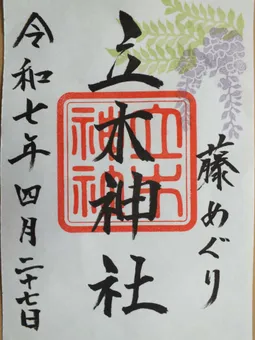 藤めぐり
立木神社
立木神社
令和七年四月二十七日